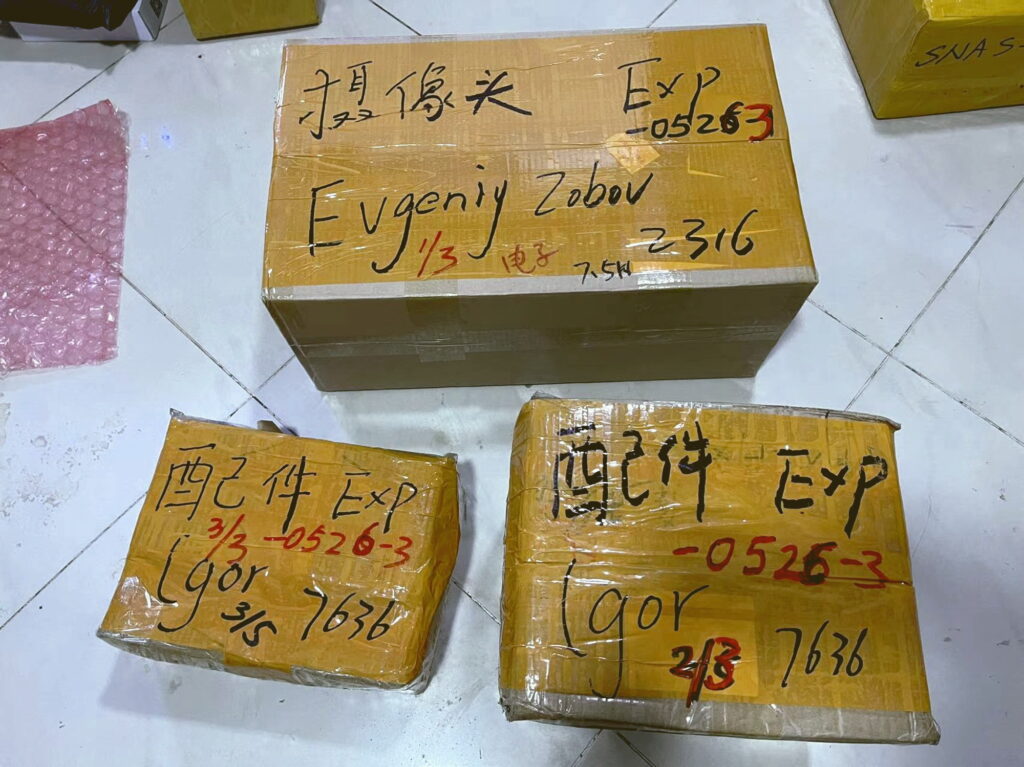 摄像头 Exp
-0526-3
Evgeniy Zobov
2316
1/3 电子 7.5H
SNAS-
配件 Exp
3/3 -0526-3
Igor
3/5 7636
配件 Exp
-0526-3
Igor
2/3 7636